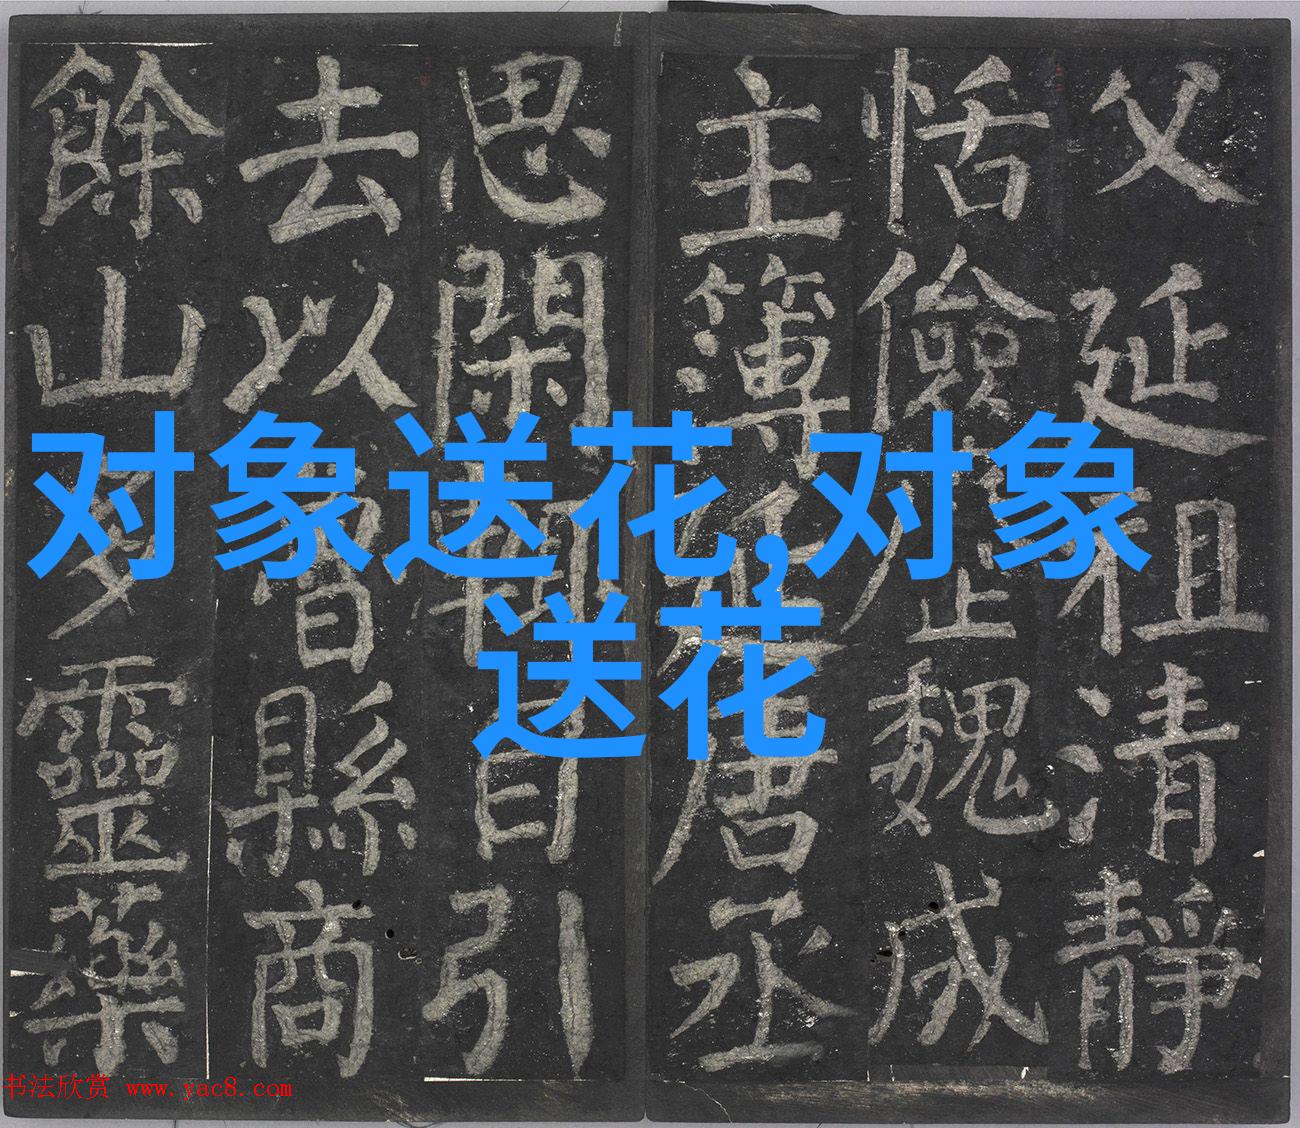 对象送花,对象
送花
父延祖清靜
恬儉歷魏成
主簿延唐丞
思閑自引
去以魯縣商
餘山多靈藥
书法欣赏 www.yac8.com